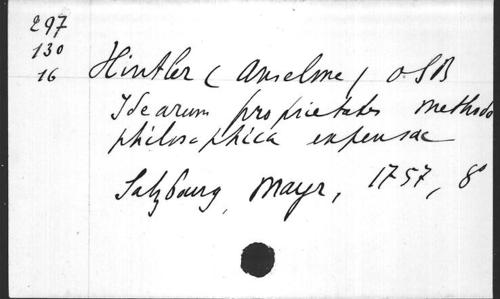 297
130
16
Hintler (Anselme) OSB
Idearum proprietates methodo
philosophica expensae
Salzbourg, Mayr, 1757, 8°